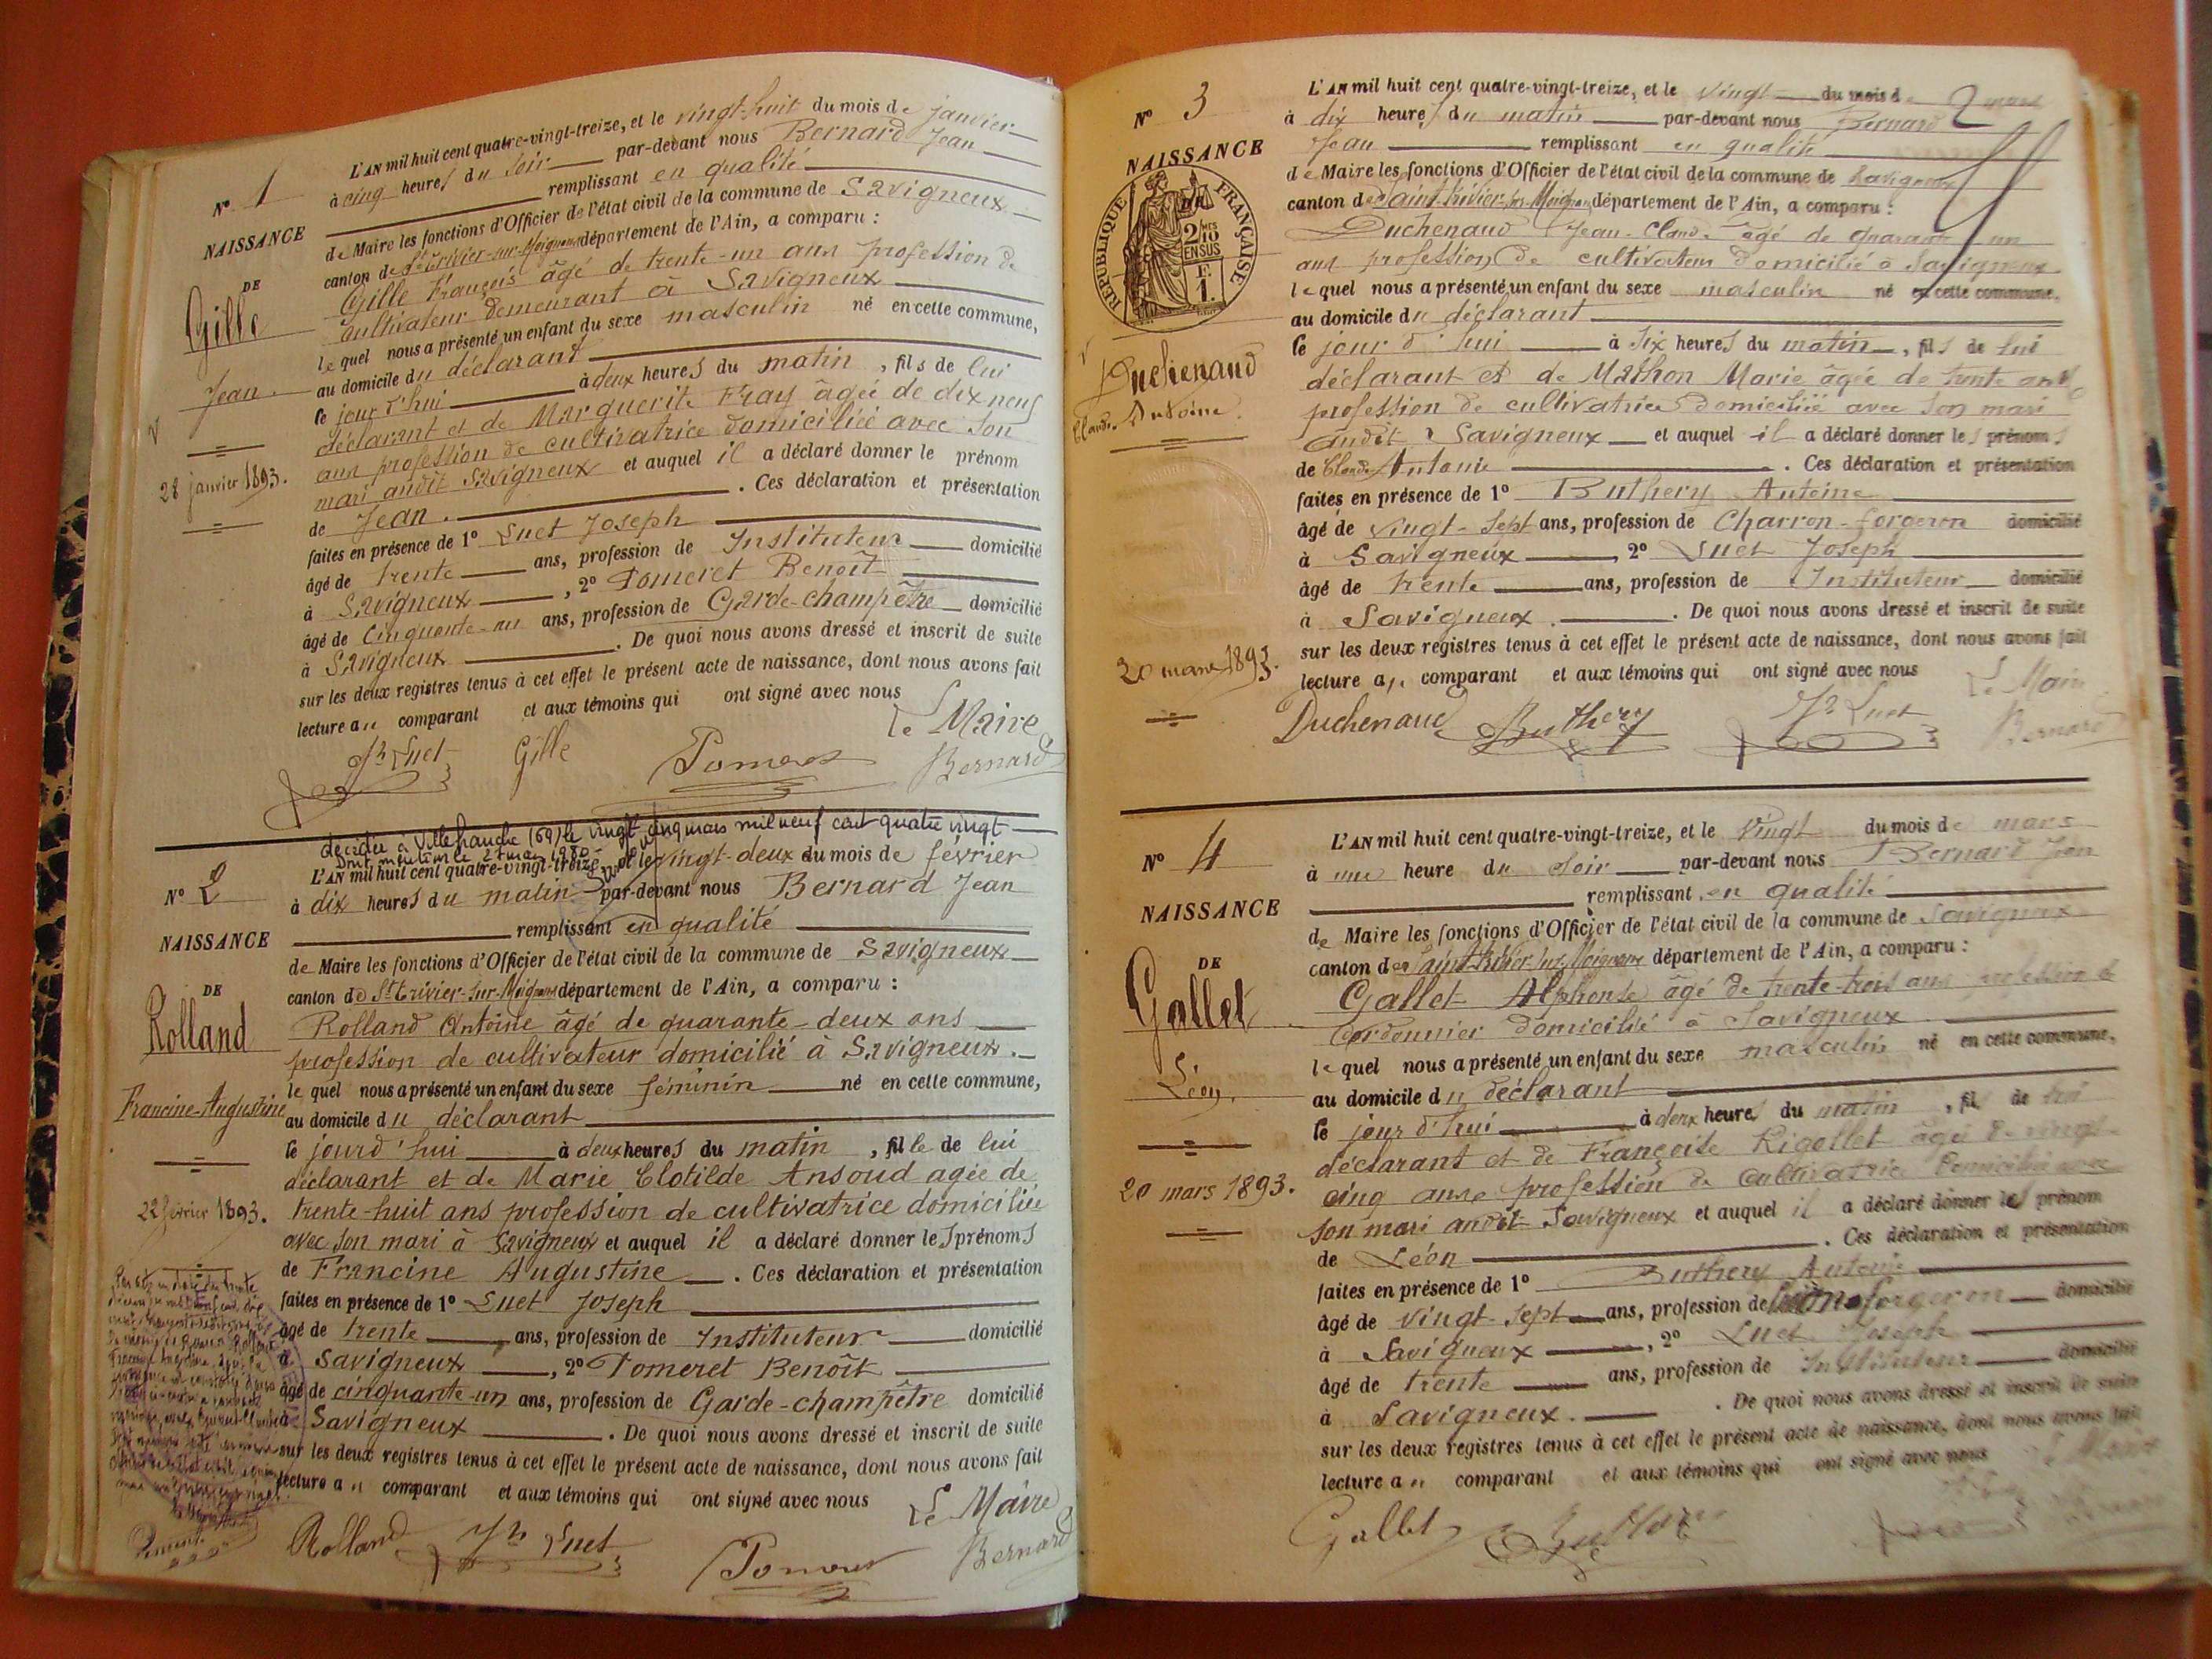 N° 1
NAISSANCE
DE
Gille
Jean
28 janvier 1893.
L'AN mil huit cent quatre-vingt-treize, et le vingt-huit du mois de janvier
à cinq heures du soir par-devant nous Bernard Jean
remplissant en qualité
de Maire les fonctions d'Officier de l'état civil de la commune de Savigneux
canton de St Trivier-sur-Moignans département de l'Ain, a comparu :
Gille François âgé de trente-un ans profession de
cultivateur demeurant à Savigneux
lequel nous a présenté un enfant du sexe masculin né en cette commune,
au domicile du déclarant
le jourd'hui à deux heures du matin, fils de lui
déclarant et de Marguerite Fray âgée de dix neuf
ans profession de cultivatrice domiciliée avec son
mari audit Savigneux et auquel il a déclaré donner le prénom
de Jean. Ces déclaration et présentation
faites en présence de 1° Luet Joseph
âgé de trente ans, profession de Instituteur domicilié
à Savigneux, 2° Pomeret Benoît
âgé de cinquante-un ans, profession de Garde-champêtre domicilié
à Savigneux. De quoi nous avons dressé et inscrit de suite
sur les deux registres tenus à cet effet le présent acte de naissance, dont nous avons fait
lecture au comparant et aux témoins qui ont signé avec nous
Le Maire
Jh Luet Gille Pomeret Bernard
décédée à Villefranche (69) le vingt cinq mars mil neuf cent quatre vingt
Dont mention le 27 mars 1980
N° 2
NAISSANCE
DE
Rolland
Francine-Augustine
22 février 1893.
L'AN mil huit cent quatre-vingt-treize et le vingt-deux du mois de février
à dix heures du matin par-devant nous Bernard Jean
remplissant en qualité
de Maire les fonctions d'Officier de l'état civil de la commune de Savigneux
canton de St Trivier-sur-Moignans département de l'Ain, a comparu :
Rolland Antoine âgé de quarante-deux ans
profession de cultivateur domicilié à Savigneux.
lequel nous a présenté un enfant du sexe féminin né en cette commune,
au domicile du déclarant
le jourd'hui à deux heures du matin, fille de lui
déclarant et de Marie Clotilde Ansoud agée de
trente-huit ans profession de cultivatrice domiciliée
avec son mari à Savigneux et auquel il a déclaré donner les prénoms
de Francine Augustine. Ces déclaration et présentation
faites en présence de 1° Luet Joseph
âgé de trente ans, profession de Instituteur domicilié
à Savigneux, 2° Pomeret Benoît
âgé de cinquante-un ans, profession de Garde-champêtre domicilié
à Savigneux. De quoi nous avons dressé et inscrit de suite
sur les deux registres tenus à cet effet le présent acte de naissance, dont nous avons fait
lecture au comparant et aux témoins qui ont signé avec nous
Le Maire
Rolland Jh Luet Pomeret Bernard
N° 3
NAISSANCE
DE
RÉPUBLIQUE FRANÇAISE
2/10 EN SUS
F. 1.
Duchenaud
Claude Antoine
20 mars 1893.
L'AN mil huit cent quatre-vingt-treize, et le vingt du mois de mars
à dix heures du matin par-devant nous Bernard
Jean remplissant en qualité
de Maire les fonctions d'Officier de l'état civil de la commune de Savigneux
canton de Saint-Trivier-sur-Moignans département de l'Ain, a comparu :
Duchenaud Jean-Claude agé de quarante un
ans profession de cultivateur domicilié à Savigneux
lequel nous a présenté un enfant du sexe masculin né en cette commune,
au domicile du déclarant
le jourd'hui à six heures du matin, fils de lui
déclarant et de Mathon Marie âgée de trente ans
profession de cultivatrice domiciliée avec son mari
audit Savigneux et auquel il a déclaré donner les prénoms
de Claude Antoine. Ces déclaration et présentation
faites en présence de 1° Buthery Antoine
âgé de vingt-sept ans, profession de Charron-forgeron domicilié
à Savigneux, 2° Luet Joseph
âgé de trente ans, profession de Instituteur domicilié
à Savigneux. De quoi nous avons dressé et inscrit de suite
sur les deux registres tenus à cet effet le présent acte de naissance, dont nous avons fait
lecture au comparant et aux témoins qui ont signé avec nous
Le Maire
Duchenaud Buthery Jh Luet Bernard
N° 4
NAISSANCE
DE
Gallet
Léon.
20 mars 1893.
L'AN mil huit cent quatre-vingt-treize, et le vingt du mois de mars
à une heure du soir par-devant nous Bernard Jean
remplissant en qualité
de Maire les fonctions d'Officier de l'état civil de la commune de Savigneux
canton de Saint-Trivier-sur-Moignans département de l'Ain, a comparu :
Gallet Alphonse âgé de trente-trois ans profession de
Cordonnier domicilié à Savigneux
lequel nous a présenté un enfant du sexe masculin né en cette commune,
au domicile du déclarant
le jourd'hui à deux heures du matin, fils de lui
déclarant et de Françoise Rigollet âgée de vingt
cinq ans profession de cultivatrice domiciliée avec
son mari audit Savigneux et auquel il a déclaré donner le prénom
de Léon. Ces déclaration et présentation
faites en présence de 1° Buthery Antoine
âgé de vingt-sept ans, profession de forgeron domicilié
à Savigneux, 2° Luet Joseph
âgé de trente ans, profession de Instituteur domicilié
à Savigneux. De quoi nous avons dressé et inscrit de suite
sur les deux registres tenus à cet effet le présent acte de naissance, dont nous avons fait
lecture au comparant et aux témoins qui ont signé avec nous
Le Maire
Gallet Buthery